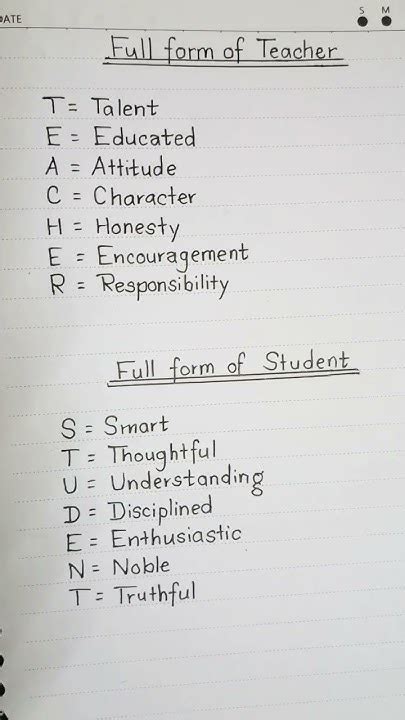 DATE
S M
Full form of Teacher
T = Talent
E = Educated
A = Attitude
C = Character
H = Honesty
E = Encouragement
R = Responsibility
Full form of Student
S = Smart
T = Thoughtful
U = Understanding
D = Disciplined
E = Enthusiastic
N = Noble
T = Truthful